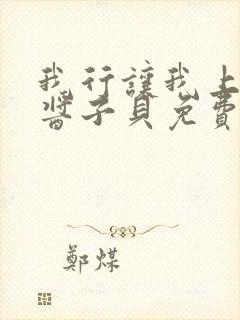 我行讓我上
醬子貝免費
鄭煤